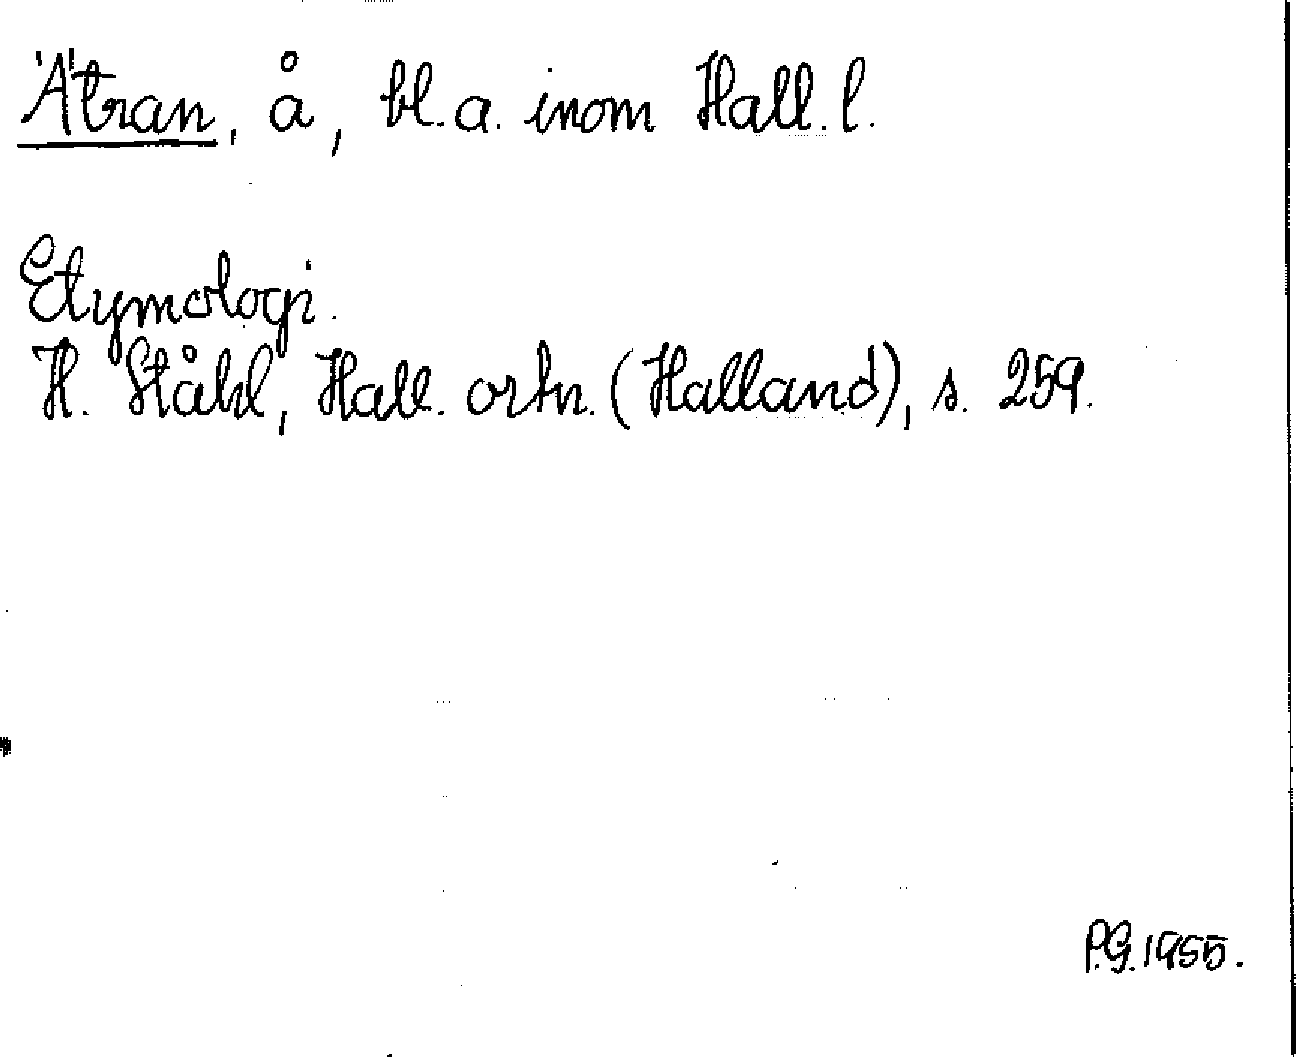 Ätran, å, bl.a. inom Hall. l.
Etymologi.
H. Ståhl, Hall. ortn. (Halland), s. 259.
P.G. 1955.